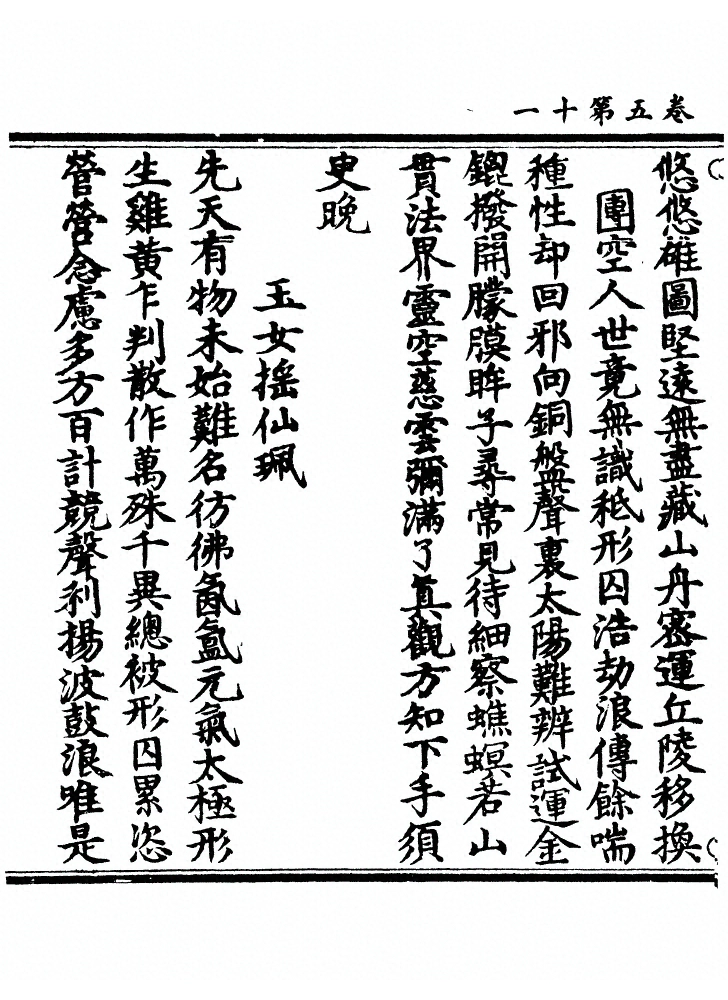 卷五第十一
悠悠雄圖堅遠無盡藏山舟密運丘陵移換
團空人世竟無識秪形囚浩劫浪傳餘喘
種性却回邪向銅盤聲裏太陽難辨試運金
鎞撥開朦膜眸子尋常見待細察蟭螟若山
貫法界靈空慈雲彌滿了真觀方知下手須
史晚
玉女揺仙珮
先天有物未始難名彷彿氤氳元氣太極形
生雞黄乍判散作萬殊千異總被形囚累恣
營營念慮多方百計競聲利揚波鼓浪唯是